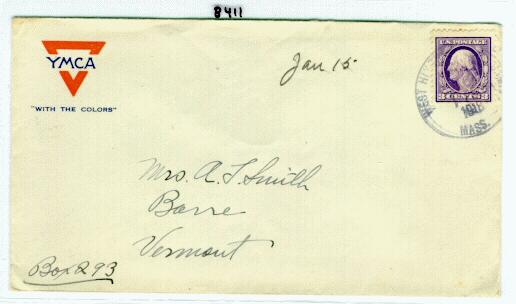 8411
YMCA
"WITH THE COLORS"
Jan 15
U.S. POSTAGE
3 CENTS 3
WEST
1918
MASS.
Mrs. A. T. Smith
Barre
Vermont
Box 293